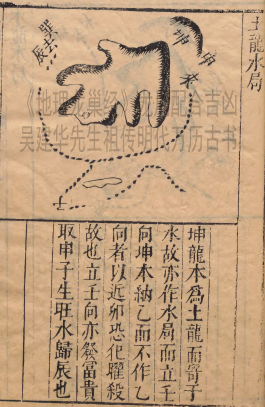 土龍水局
未
申
坤
巽去
辰
子
《地理 巢经》 配合吉凶
吴建华先生祖传明代万历古书
坤龍本爲土龍而寄子
水故亦作水局而立壬
向坤本納乙而不作乙
向者以近卯恐犯曜殺
故也立壬向亦發富貴
取申子生旺水歸辰也